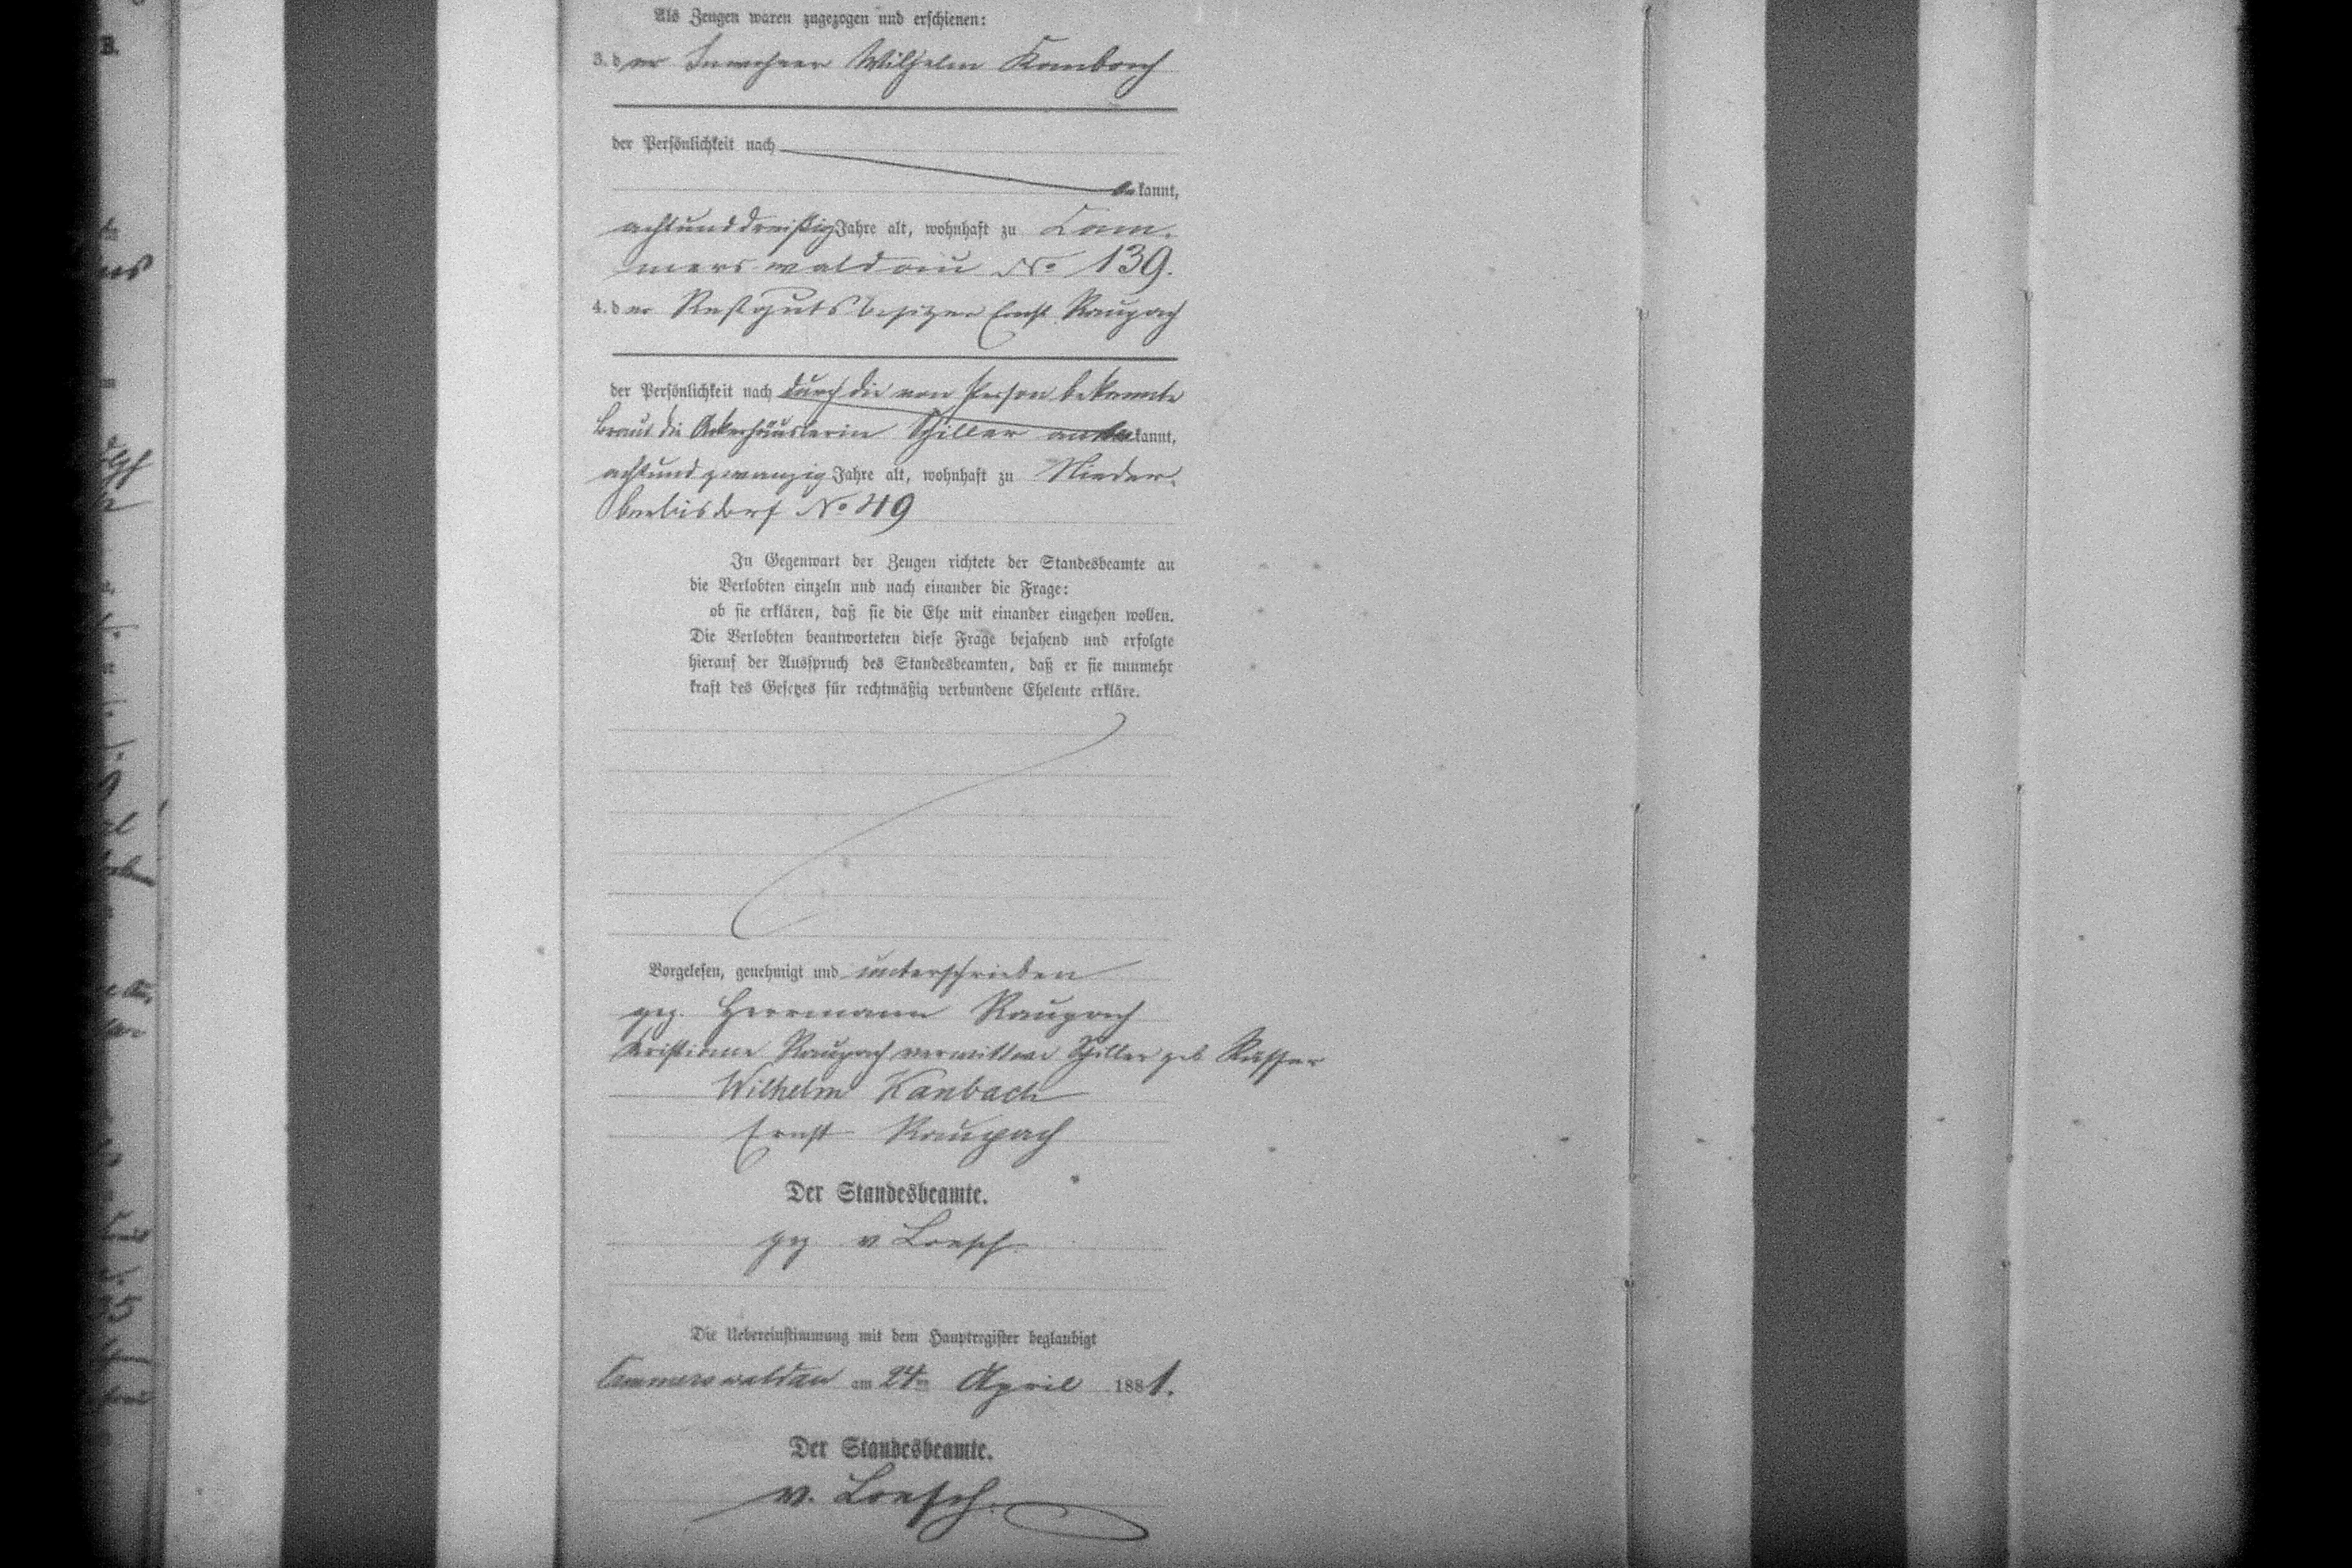 Als Zeugen waren zugezogen und erschienen:
3. der Inwohner Wilhelm Kambach
der Persönlichkeit nach
bekannt,
achtunddreißig Jahre alt, wohnhaft zu Cam-
merswaldau No 139.
4. der Restgutsbesitzer Ernst Raupach
der Persönlichkeit nach durch die von Person bekannte
Braut die Ackerhäuslerin Schiller anerkannt,
achtundzwanzig Jahre alt, wohnhaft zu Nieder-
Berbisdorf No 49
In Gegenwart der Zeugen richtete der Standesbeamte an
die Verlobten einzeln und nach einander die Frage:
ob sie erklären, daß sie die Ehe mit einander eingehen wollen.
Die Verlobten beantworteten diese Frage bejahend und erfolgte
hierauf der Ausspruch des Standesbeamten, daß er sie nunmehr
kraft des Gesetzes für rechtmäßig verbundene Eheleute erkläre.
Vorgelesen, genehmigt und unterschrieben
gez. Herrmann Raupach
Kristiane Raupach verwittwe Schiller geb
Wilhelm Kanbach
Ernst Raupach
Der Standesbeamte.
gez v Loesch
Die Uebereinstimmung mit dem Hauptregister beglaubigt
Cammerswaldau am 24ten April 1881.
Der Standesbeamte.
v. Loesch.